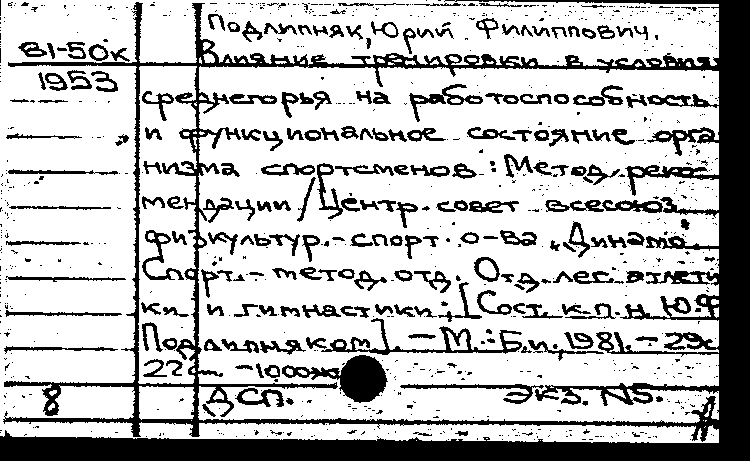 Подлипняк, Юрий Филиппович.
81-50к Влияние тренировки в условиях
1953
среднегорья на работоспособность
и функциональное состояние орга
низма спортсменов : Метод. реко-
мендации / Центр. совет всесоюз.
физкультур.-спорт. о-ва „Динамо".
Спорт.-метод. отд. Отд. лег. атлети
ки и гимнастики ; [Сост. к.п.н. Ю.Ф
Подлипняком]. — М. : Б.и., 1981. — 29с
22 см — 1000
8 ДСП. Экз. N5.